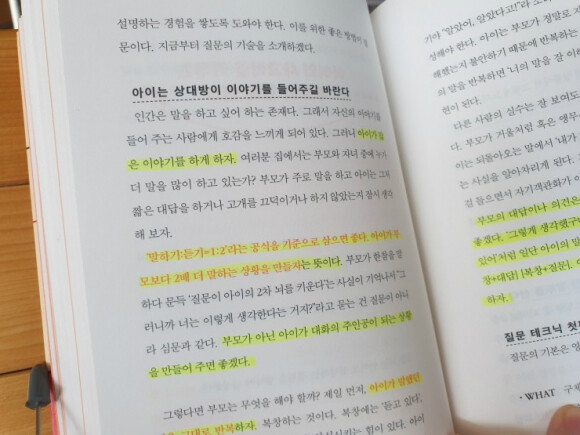 설명하는 경험을 쌓도록 도와야 한다. 이를 위한 좋은 방법이 질
문이다. 지금부터 질문의 기술을 소개하겠다.
아이는 상대방이 이야기를 들어주길 바란다
인간은 말을 하고 싶어 하는 존재다. 그래서 자신의 이야기를
들어 주는 사람에게 호감을 느끼게 되어 있다. 그러니 아이가 많
은 이야기를 하게 하자. 여러분 집에서는 부모와 자녀 중에 누가
더 말을 많이 하고 있는가? 부모가 주로 말을 하고 아이는 그저
짧은 대답을 하거나 고개를 끄덕이거나 하지 않았는지 잠시 생각
해 보자.
'말하기:듣기=1:2'라는 공식을 기준으로 삼으면 좋다. 아이가 부
모보다 2배 더 말하는 상황을 만들자는 뜻이다. 부모가 한참을 말
하다 문득 '질문이 아이의 2차 뇌를 키운다'는 사실이 기억나서 "그
러니까 너는 이렇게 생각한다는 거지?"라고 묻는 건 질문이 아니
라 심문과 같다. 부모가 아닌 아이가 대화의 주인공이 되는 상황
을 만들어 주면 좋겠다.
그렇다면 부모는 무엇을 해야 할까? 제일 먼저, 아이가 말했던
그대로 반복하자. 복창하는 것이다. 복창에는 '듣고 있다',
힘이 있다. 아이
기야 "알았어, 알았다고!"라
성해야 한다. 아이는 부모가 정말로
해했는지 불안하기 때문에 반복하는
와 말을 반복하면 '너의 말을 잘 이해
현이 된다.
다른 사람의 실수는 잘 보여도
다. 부모가 거울처럼 혹은 앵무
이는 되돌아오는 말에서 '내가
는 사실을 알아차리게 된다.
길 들으면서 자기객관화가 이
부모의 대답이나 의견은
좋겠다. "그렇게 생각했구
있어"처럼 일단 아이의 말
창+대답], [복창+질문],
하자.
질문 테크닉 첫
질문의 기본은
• WHAT 구체